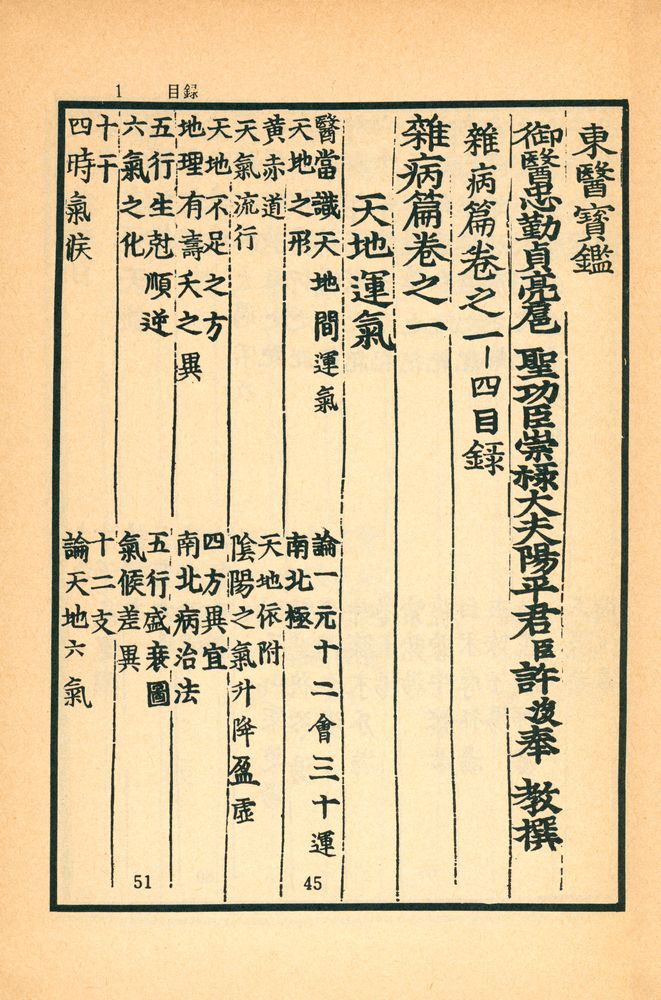 1 目録
東醫寶鑑
御醫忠勤貞亮扈 聖功臣崇祿大夫陽平君臣許浚奉 教撰
雜病篇卷之一-四目錄
雜病篇卷之一
天地運氣
醫當識天地間運氣
論一元十二會三十運
天地之形
南北極
黃赤道
天地依附
天氣流行
陰陽之氣升降盈虛
天地不足之方
四方異宜
地理有壽夭之異
南北病治法
五行生尅順逆
五行盛衰圖
六氣之化
氣候差異
十干
十二支
四時氣候
論天地六氣
45
51